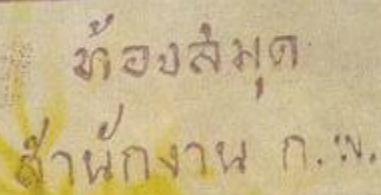 ห้องสมุด
สำนักงาน ก.พ.